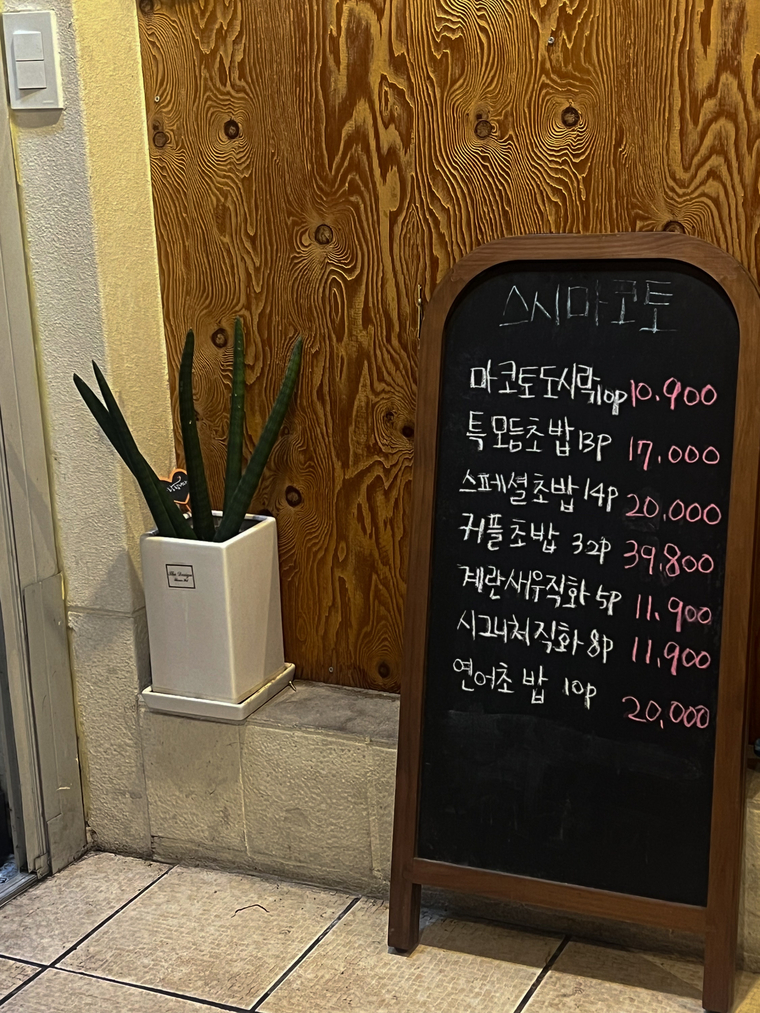 스시마코토
마코토도시락10p 10.900
특모듬초밥13P 17,000
스페셜초밥14P 20,000
커플초밥 32P 39,800
계란새우직화 5P 11,900
시그니처직화 8P 11,900
연어초밥 10P 20,000